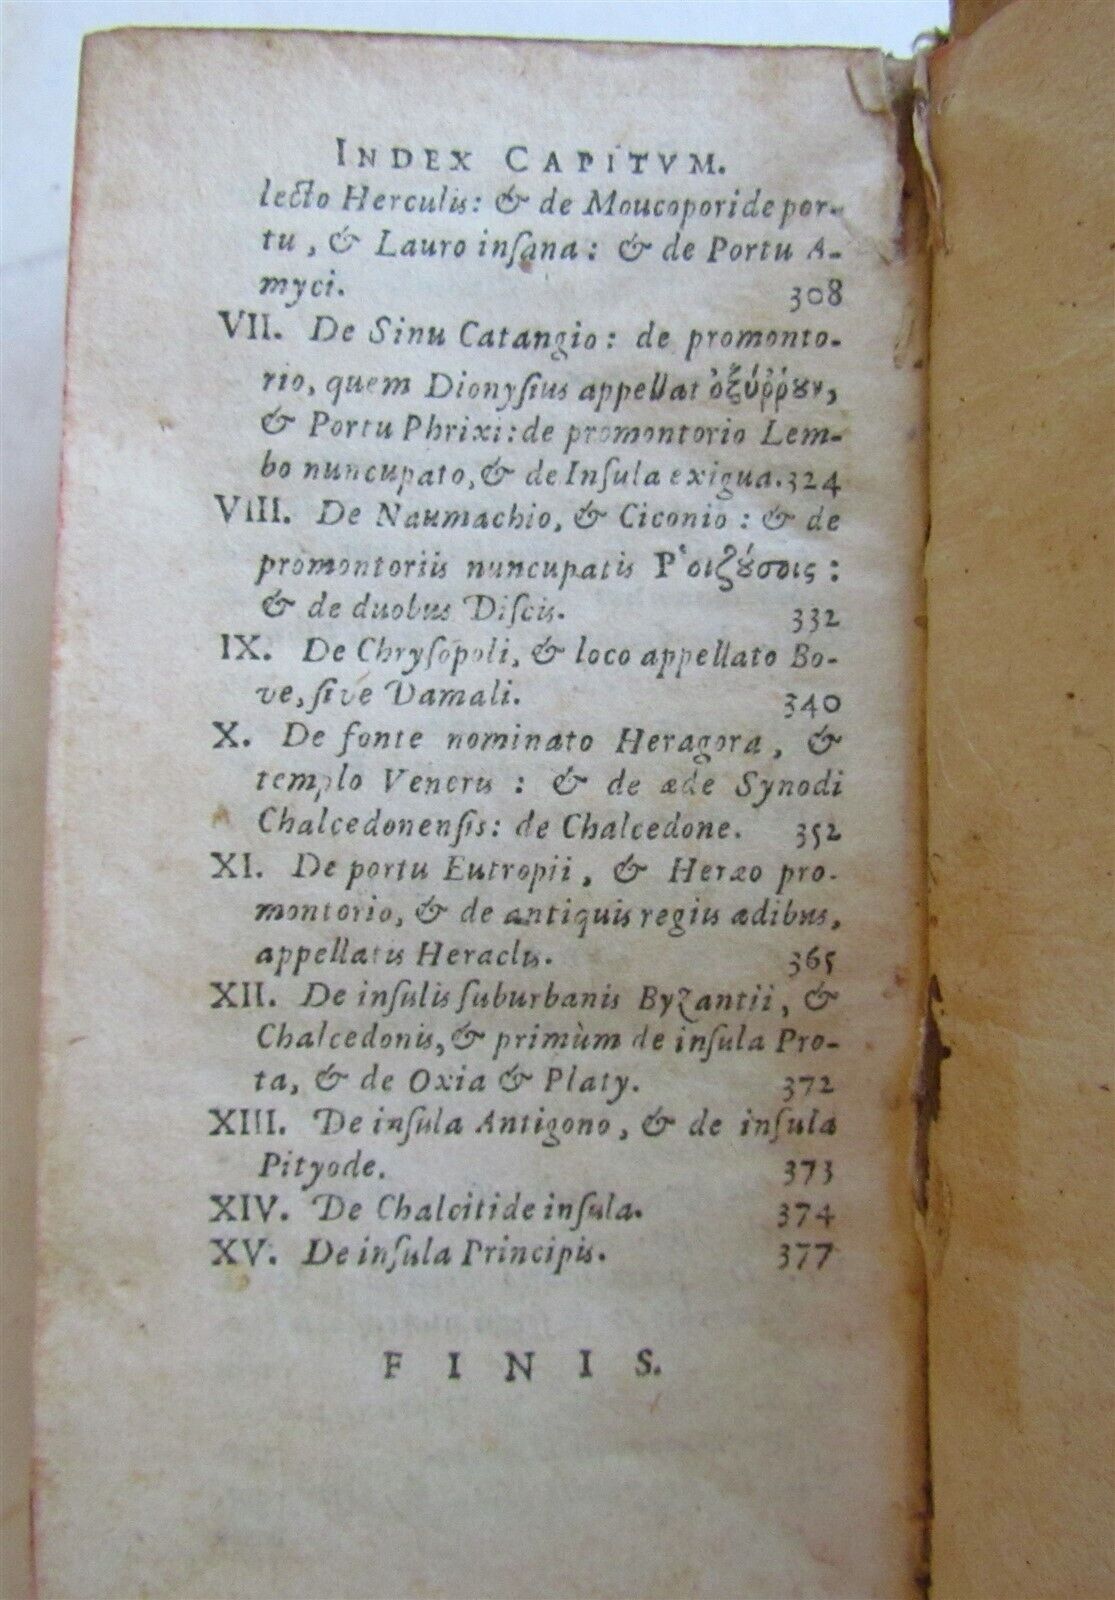 INDEX CAPITVM.
lecto Herculis: & de Moucoporide por-
tu, & Lauro inſana: & de Portu A-
myci. 308
VII. De Sinu Catangio: de promonto-
rio, quem Dionyſius appellat ὀξύῤῥȣν,
& Portu Phrixi: de promontorio Lem-
bo nuncupato, & de Inſula exigua. 324
VIII. De Naumachio, & Ciconio: & de
promontoriis nuncupatis Ῥοιζȣ́σαις:
& de duobus Diſcis. 332
IX. De Chryſopoli, & loco appellato Bo-
ve, ſive Damali. 340
X. De fonte nominato Heragora, &
templo Veneris: & de æde Synodi
Chalcedonenſis: de Chalcedone. 352
XI. De portu Eutropii, & Heræo pro-
montorio, & de antiquis regiis ædibus,
appellatis Heraclis. 365
XII. De inſulis ſuburbanis Byzantii, &
Chalcedonis, & primùm de inſula Pro-
ta, & de Oxia & Platy. 372
XIII. De inſula Antigono, & de inſula
Pityode. 373
XIV. De Chalcitide inſula. 374
XV. De inſula Principis. 377
FINIS.